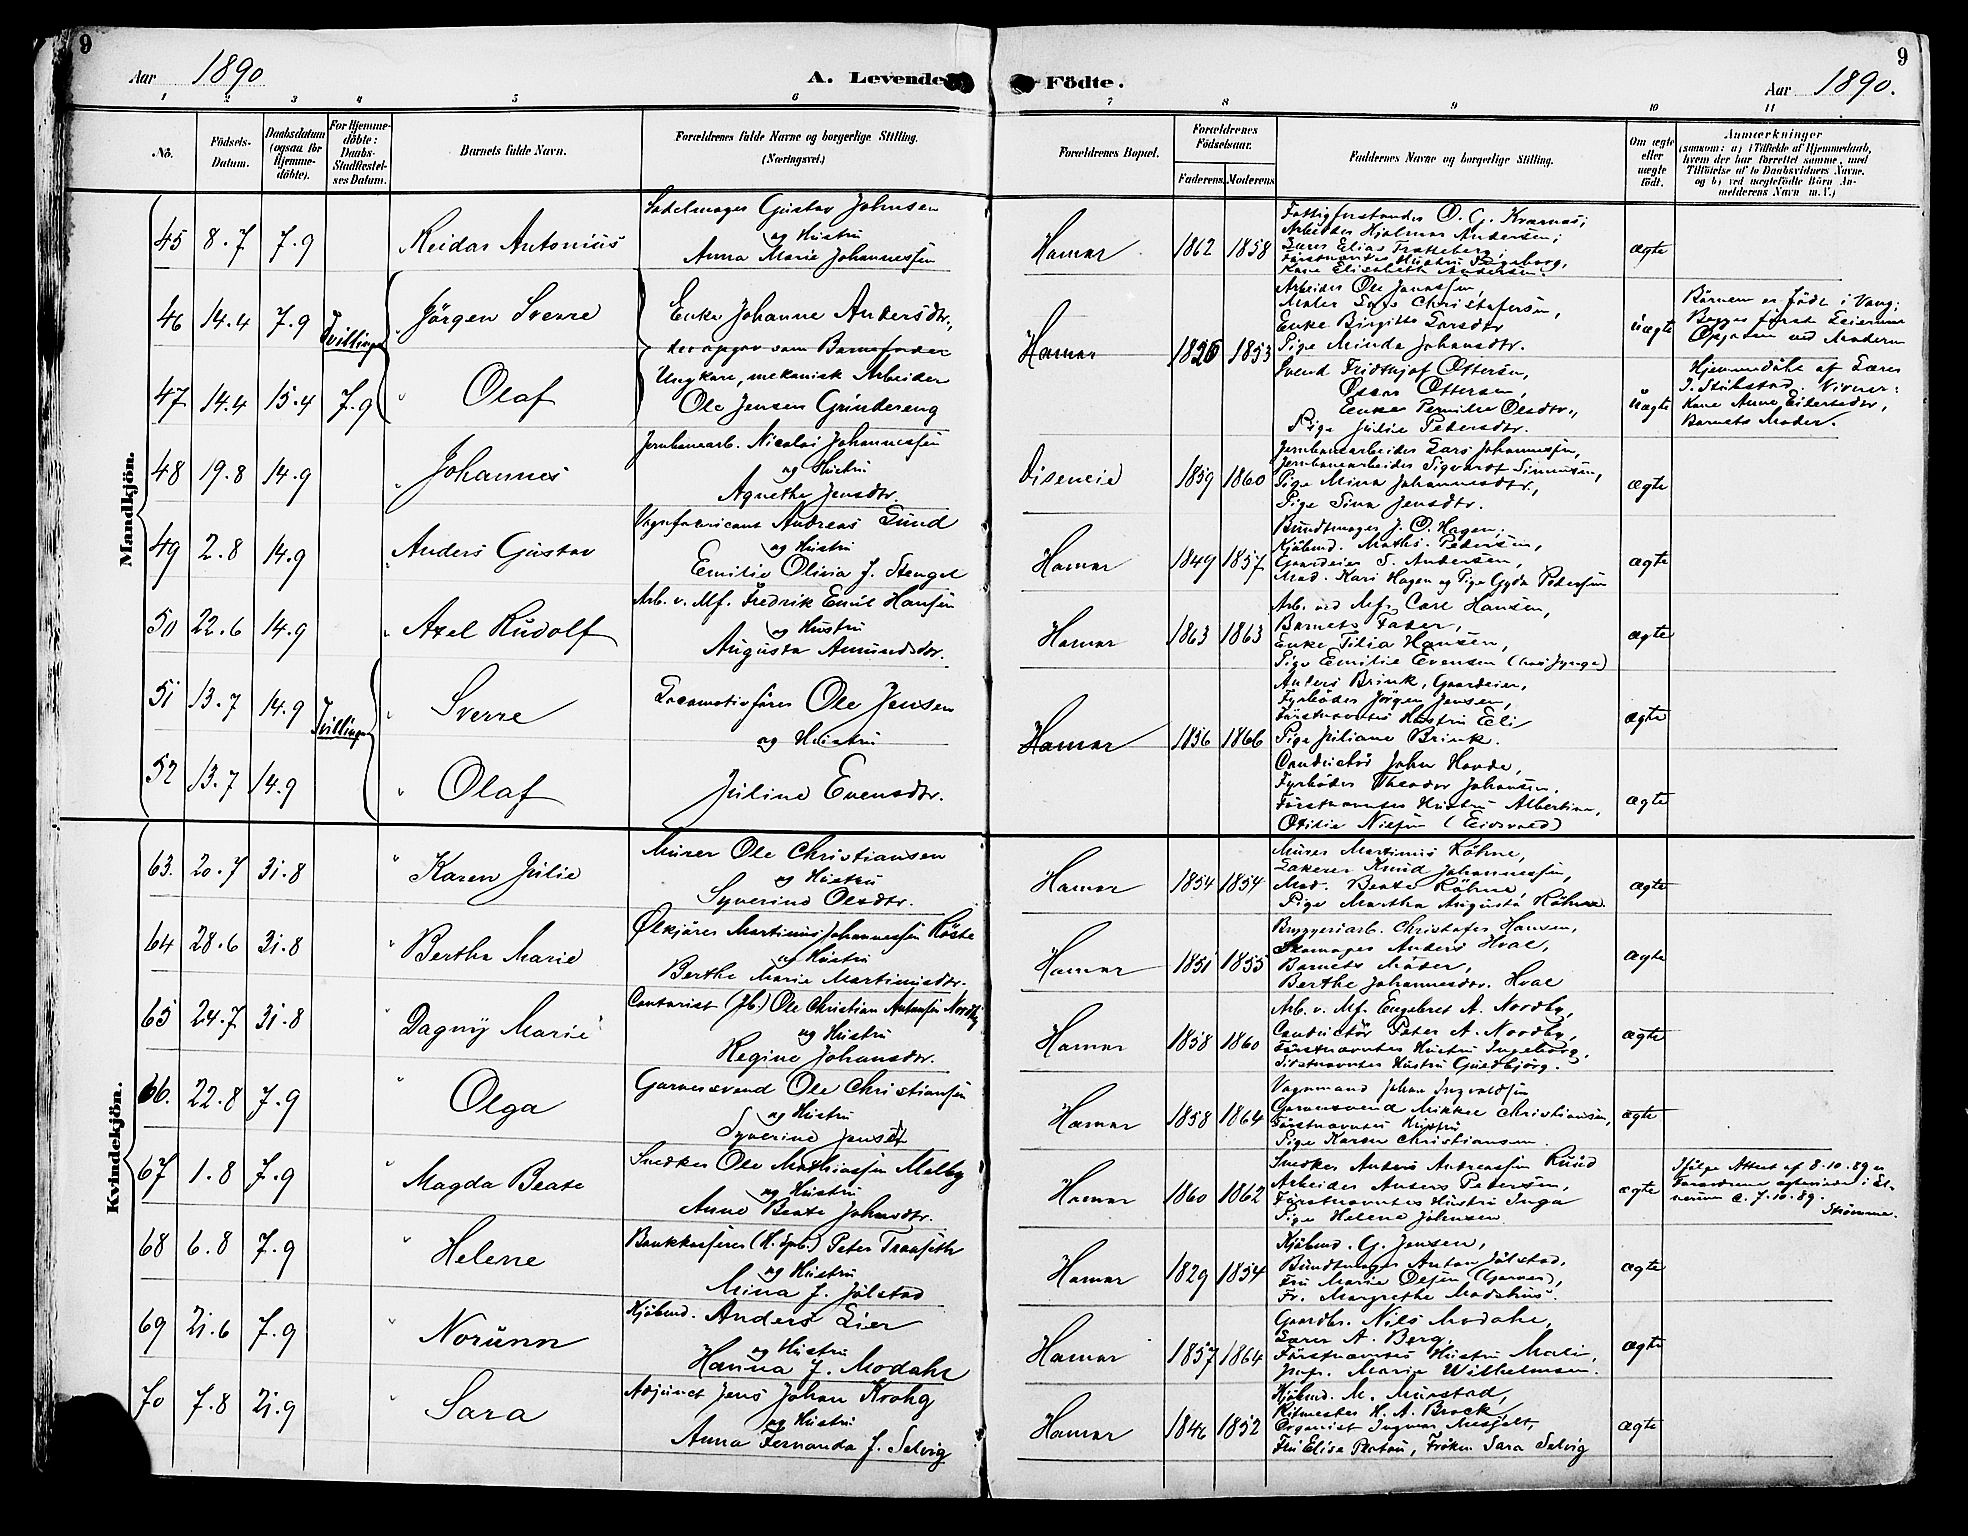 9
Aar 1890
A. Levende
Födte.
Aar 1890.
9
1 2 3 4 5 6 7 8 9 10 11
No.
Födsels-Datum.
Daabsdatum (ogsaa for Hjemme-döbte).
For Hjemme-döbte: Daabs-Stadfæstel-ses Datum.
Barnets fulde Navn.
Forældrenes fulde Navne og borgerlige Stilling. (Næringsvei.)
Forældrenes Bopæl.
Forældrenes Födselsaar.
Faderens. Moderens.
Faddernes Navne og borgerlige Stilling.
Om ægte eller uægte födt.
Anmærkninger
(saasom: a) i Tilfælde af Hjemmedaab,
hvem der har forrettet samme, med
Tilföielse af to Daabsvidners Navne,
og b) ved uægtefödte Börn An-
melderens Navn m. V.)
Mandkjön.
45 8.7 7.9 Reidar Antonius
Sadelmager Gustav Johnsen
og Hustru
Anna Marie Johannessen
Hamar 1862 1858
Fattigforstander O. G. Kvarnæs;
Arbeider Hjalmar Andersen;
Lærer Elias Trætteberg,
Förstnævntes Hustru Ingeborg,
Kone Elisabeth Andersen.
ægte
46 14.4 7.9 Tvillinger Jörgen Sverre
Enke Johanne Andersdtr.,
der opgav som Barnefader
Hamar 1826 1853
Arbeider Ole Jonassen,
Maler Lars Christofersen,
Enke Birgitte Larsdtr
Pige Minda Johansdtr.
uægte
Börnene er födt i Vang;
Begges först Leiermaal
Opgaven ved Moderen
47 14.4 15.4 7.9 " Olaf
Ungkarl, mekanisk Arbeider
Ole Jensen Grindereng
Svend Fridthjof Ottersen,
Oscar Ottersen,
Enke Pernilie Olsdtr.,
Pige Julie Petersdtr.
uægte
Hjemmedöbt af Lærer
J. Stibstad. Vidner:
Kone Anne Eilertsdtr,
Barnets Moder.
48 19.8 14.9 " Johannes
Jernbanearb. Nicolai Johannessen
og Hustru
Agnethe Jensdtr.
Diseneie 1859 1860
Jernbanearbeider Lars Johannessen,
Jernbanearbeider Sigvardt Simensen,
Pige Mina Johannesdtr.,
Pige Sina Jensdtr.
ægte
49 2.8 14.9 " Anders Gustav
Vognfabricant Andreas Lund
og Hustru
Emilie Olivia J. Stenget
Hamar 1849 1857
Bundtmager J. O. Hagen,
Kjöbmd. Maths. Petersen,
Gaardeier S. Andersen,
Mad. Kari Hagen og Pige Gyda Pedersen
ægte
50 22.6 14.9 " Axel Rudolf
Arb. v. Mf. Fredrik Emil Hansen
og Hustru
Augusta Amundsdtr.
Hamar 1863 1863
Arb. ved Mf. Carl Hansen,
Barnets Fader,
Enke Tilia Hansen,
Pige Emilie Evensen
ægte
51 13.7 14.9 Tvillinger " Sverre
Locomotivförer Ole Jensen
og Hustru
Hamar 1856 1866
Anders Brink, Gaardeier,
Fyrböder Jörgen Jensen,
Förstnævntes Hustru Eli
Pige Juliane Brink.
ægte
52 13.7 14.9 " Olaf
Juline Evensdtr.
Conductör John Hovde,
Fyrböder Theodor Johansen,
Förstnævntes Hustru Albertine,
Otilie Nilsen (Eidsvold)
ægte
Kvindekjön.
63. 20.7 31.8 " Karen Julie
Murer Ole Christiansen
og Hustru
Syverine Olsdtr.
Hamar 1854 1854
Murer Martinus Röhne,
Lakerer Knud Johannessen,
Mad. Beate Röhne,
Pige Martha Augusta Röhne.
ægte
64 28.6 31.8 " Berthe Marie
Ölkjörer Martinus Johannessen Röste
og Hustru
Berthe Marie Martinusdtr.
Hamar 1851 1855
Bryggeriarb. Christofer Hansen,
Skomager Anders Hval,
Barnets Moder,
Berthe Johannesdtr. Hval
ægte
65 24.7 31.8 " Dagny Marie
Contorist (Jb.) Ole Christian Antonsen Nordby
og Hustru
Regine Johansdtr.
Hamar 1858 1860
Arb. v. Mf. Engebret A. Nordby,
Conductör Peter A. Nordby,
Förstnævntes Hustru Ingeborg,
Sidstnævntes Hustru Gudbjörg.
ægte
66. 22.8 7.9 " Olga
Garversvend Ole Christiansen
og Hustru
Syverine Jensdt
Hamar 1858 1864
Vognmand Johan Ingvaldsen
Garversvend Mikkel Christiansen,
Förstnævntes Hustru
Pige Karen Christiansen.
ægte
67 1.8 7.9 " Magda Beate
Snedker Ole Mathiassen Melby
og Hustru
Anne Beate Johnsdtr.
Hamar 1860 1862
Snedker Anders Andreassen Ruud
Arbeider Anders Petersen,
Förstnævntes Hustru Inga
Pige Helene Johnsen
ægte
Ifölge Attest af 8.10.89 er
Forældrene ægteviede i El-
verum d. 7.10.89.
Strömme.
68 6.8 7.9 " Helene
Bankkasserer (H. Spb.) Peter Traaseth
og Hustru
Mina J. Jölstad
Hamar 1829 1854
Kjöbmd. G. Jensen,
Bundtmager Anton Jölstad,
Fru Marie Olsen (Garver),
Fr. Margrethe Madshus.
ægte
69 21.6 7.9 " Norunn
Kjöbmd. Anders Lier
og Hustru
Hanna J. Modahl
Hamar 1857 1864
Gaardbr. Nils Modahl,
Lærer A. Berg,
Förstnævntes Hustru Mali,
Jnfr. Marie Wilhelmsen.
ægte
70 7.8 21.9 " Sara
Adjunct Jens Johan Krohg
og Hustru
Anna Fernanda J. Selvig
Hamar 1846 1852
Kjöbmd. M. Mürstad,
Ritmester H. A. Brock,
Organist Ingvar Mesjelt,
Fru Elise Platou, Fröken Sara Selvig
ægte